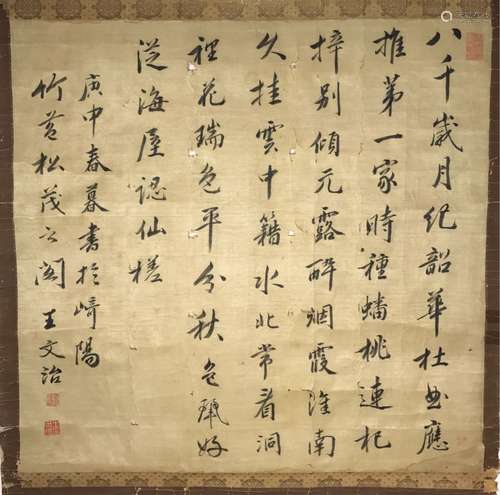 八千歲月紀韶華杜曲應
推第一家時種蟠桃連杞
梓別傾元露醉烟霞淮南
久挂雲中籍水北常看洞
裡花瑞色平分秋色好
從海屋認仙槎
庚申春暮書於崎陽
竹苞松茂之閣 王文治